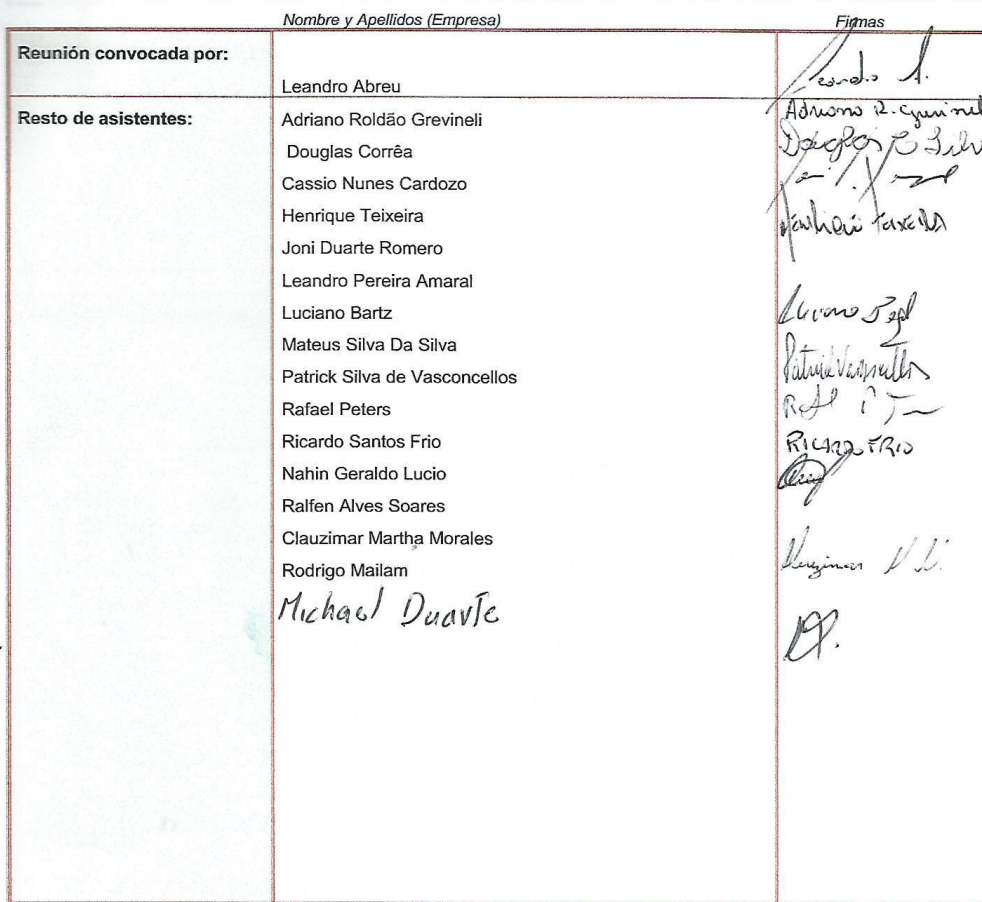 Nombre y Apellidos (Empresa) Firmas
Reunión convocada por:
Leandro Abreu Leandro A.
Resto de asistentes: Adriano Roldão Grevineli Adriano R.
Douglas Corrêa Douglas C Silv
Cassio Nunes Cardozo
Henrique Teixeira Teixeira
Joni Duarte Romero
Leandro Pereira Amaral
Luciano Bartz Luciano
Mateus Silva Da Silva
Patrick Silva de Vasconcellos Patrick Vasconcellos
Rafael Peters
Ricardo Santos Frio RICARDO FRIO
Nahin Geraldo Lucio
Ralfen Alves Soares
Clauzimar Martha Morales Clauzimar
Rodrigo Mailam
Michael Duarte